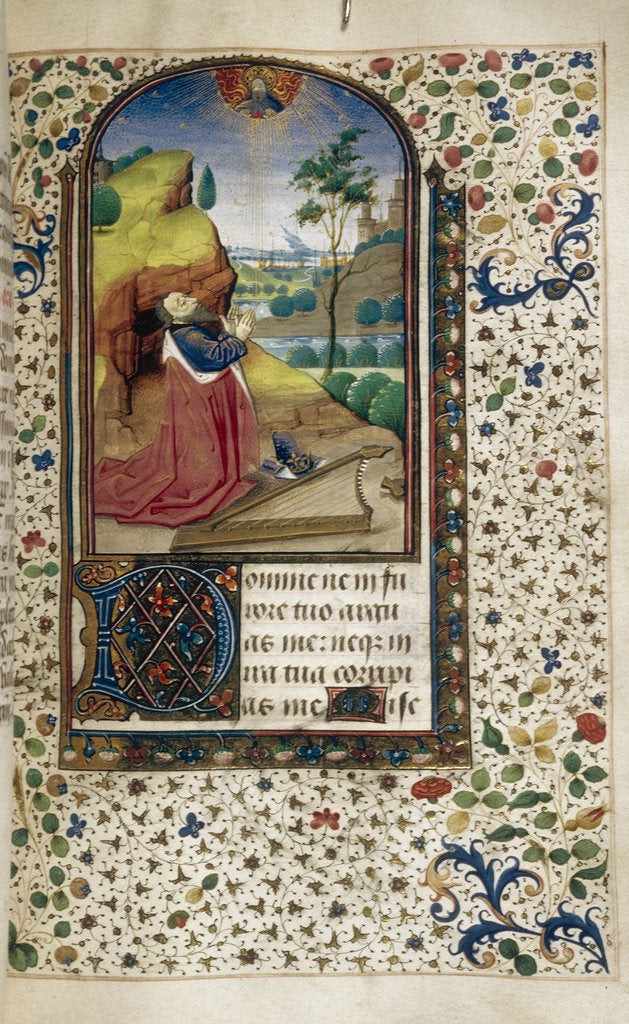 Domine ne in fu
rore tuo argu
as me: neq in
ira tua corripi
as me Mise